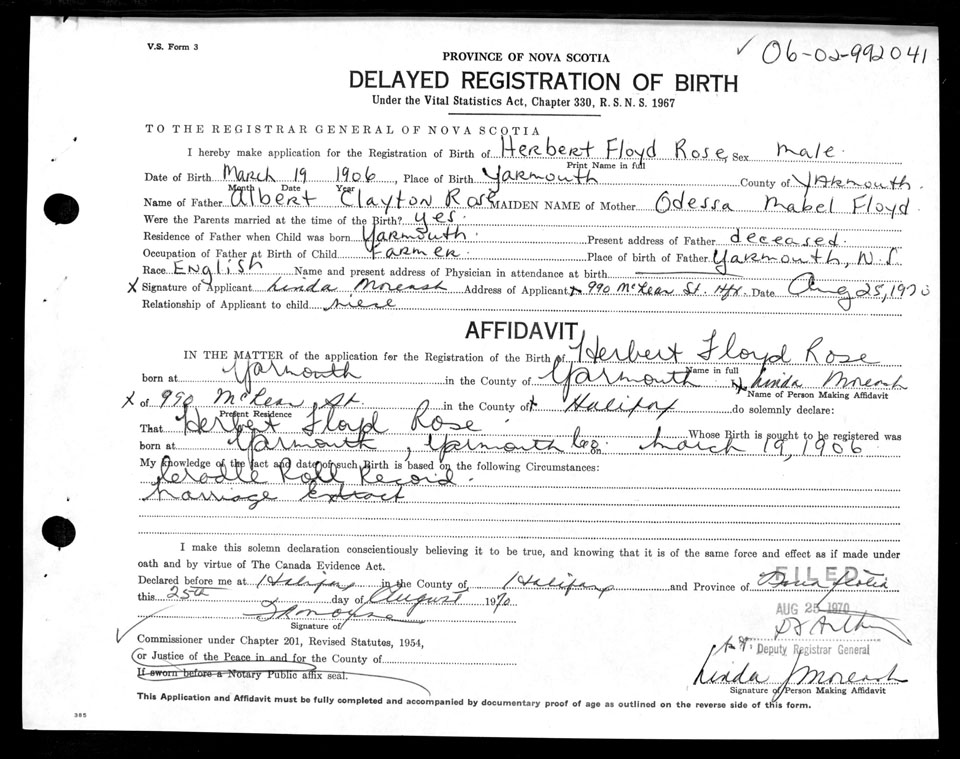 V.S. Form 3
✓ 06-02-992041
PROVINCE OF NOVA SCOTIA
DELAYED REGISTRATION OF BIRTH
Under the Vital Statistics Act, Chapter 330, R. S. N. S. 1967
TO THE REGISTRAR GENERAL OF NOVA SCOTIA
I hereby make application for the Registration of Birth of Herbert Floyd Rose, Sex male.
Print Name in full
Date of Birth March 19 1906, Place of Birth Yarmouth County of Yarmouth.
Month Date Year
Name of Father Albert Clayton Rose MAIDEN NAME of Mother Odessa Mabel Floyd.
Were the Parents married at the time of the Birth? yes.
Residence of Father when Child was born Yarmouth. Present address of Father deceased.
Occupation of Father at Birth of Child Farmer Place of birth of Father Yarmouth, N.S.
Race English Name and present address of Physician in attendance at birth
X Signature of Applicant Linda Moreash Address of Applicant 990 McLean St. Hfx. Date Aug 25, 1970
Relationship of Applicant to child niece
AFFIDAVIT
IN THE MATTER of the application for the Registration of the Birth of Herbert Floyd Rose
Name in full
born at Yarmouth in the County of Yarmouth I, Linda Moreash
Name of Person Making Affidavit
X of 990 McLean St in the County of Halifax do solemnly declare:
Present Residence
That Herbert Floyd Rose Whose Birth is sought to be registered was
born at Yarmouth, Yarmouth Co. on March 19, 1906
My knowledge of the fact and date of such Birth is based on the following Circumstances:
Cradle Roll Record.
Marriage Extract
I make this solemn declaration conscientiously believing it to be true, and knowing that it is of the same force and effect as if made under
oath and by virtue of The Canada Evidence Act.
Declared before me at Halifax in the County of Halifax and Province of Nova Scotia
this 25th day of August 1970
FILED
AUG 25 1970
Signature of
Deputy Registrar General
Commissioner under Chapter 201, Revised Statutes, 1954,
or Justice of the Peace in and for the County of
If sworn before a Notary Public affix seal.
Linda Moreash
Signature of Person Making Affidavit
This Application and Affidavit must be fully completed and accompanied by documentary proof of age as outlined on the reverse side of this form.
385